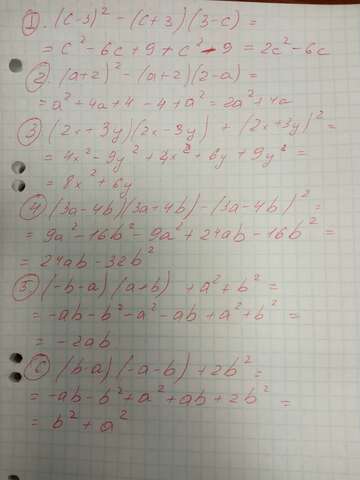 1. (c-3)² - (c+3)(3-c) =
= c² - 6c + 9 + c² - 9 = 2c² - 6c
2. (a+2)² - (a+2)(2-a) =
= a² + 4a + 4 - 4 + a² = 2a² + 4a
3) (2x+3y)(2x-3y) + (2x+3y)² =
= 4x² - 9y² + 4x² + 6y + 9y² =
= 8x² + 6y
4) (3a-4b)(3a+4b) - (3a-4b)² =
= 9a² - 16b² - 9a² + 24ab - 16b² =
= 24ab - 32b²
5) (-b-a)(a+b) + a² + b² =
= -ab - b² - a² - ab + a² + b² =
= -2ab
6) (b-a)(-a-b) + 2b² =
= -ab - b² + a² + ab + 2b² =
= b² + a²